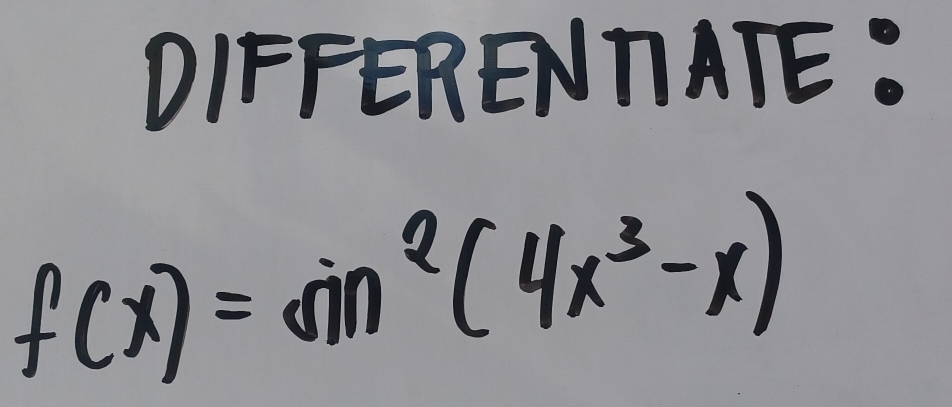 DIFFERENTIATE:
f(x) = sin²(4x³-x)